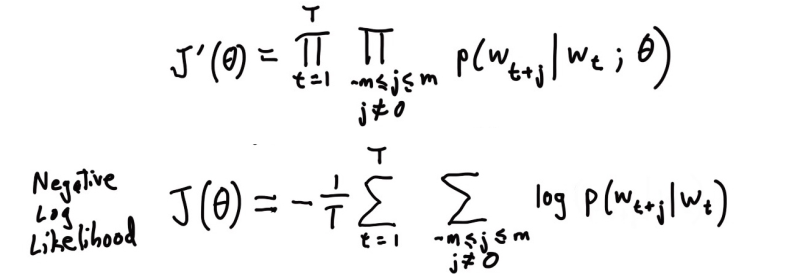 J'(θ) = ∏_{t=1}^{T} ∏_{-m≤j≤m, j≠0} p(w_{t+j} | w_t ; θ)
Negative Log Likelihood J(θ) = -1/T ∑_{t=1}^{T} ∑_{-m≤j≤m, j≠0} log p(w_{t+j} | w_t)